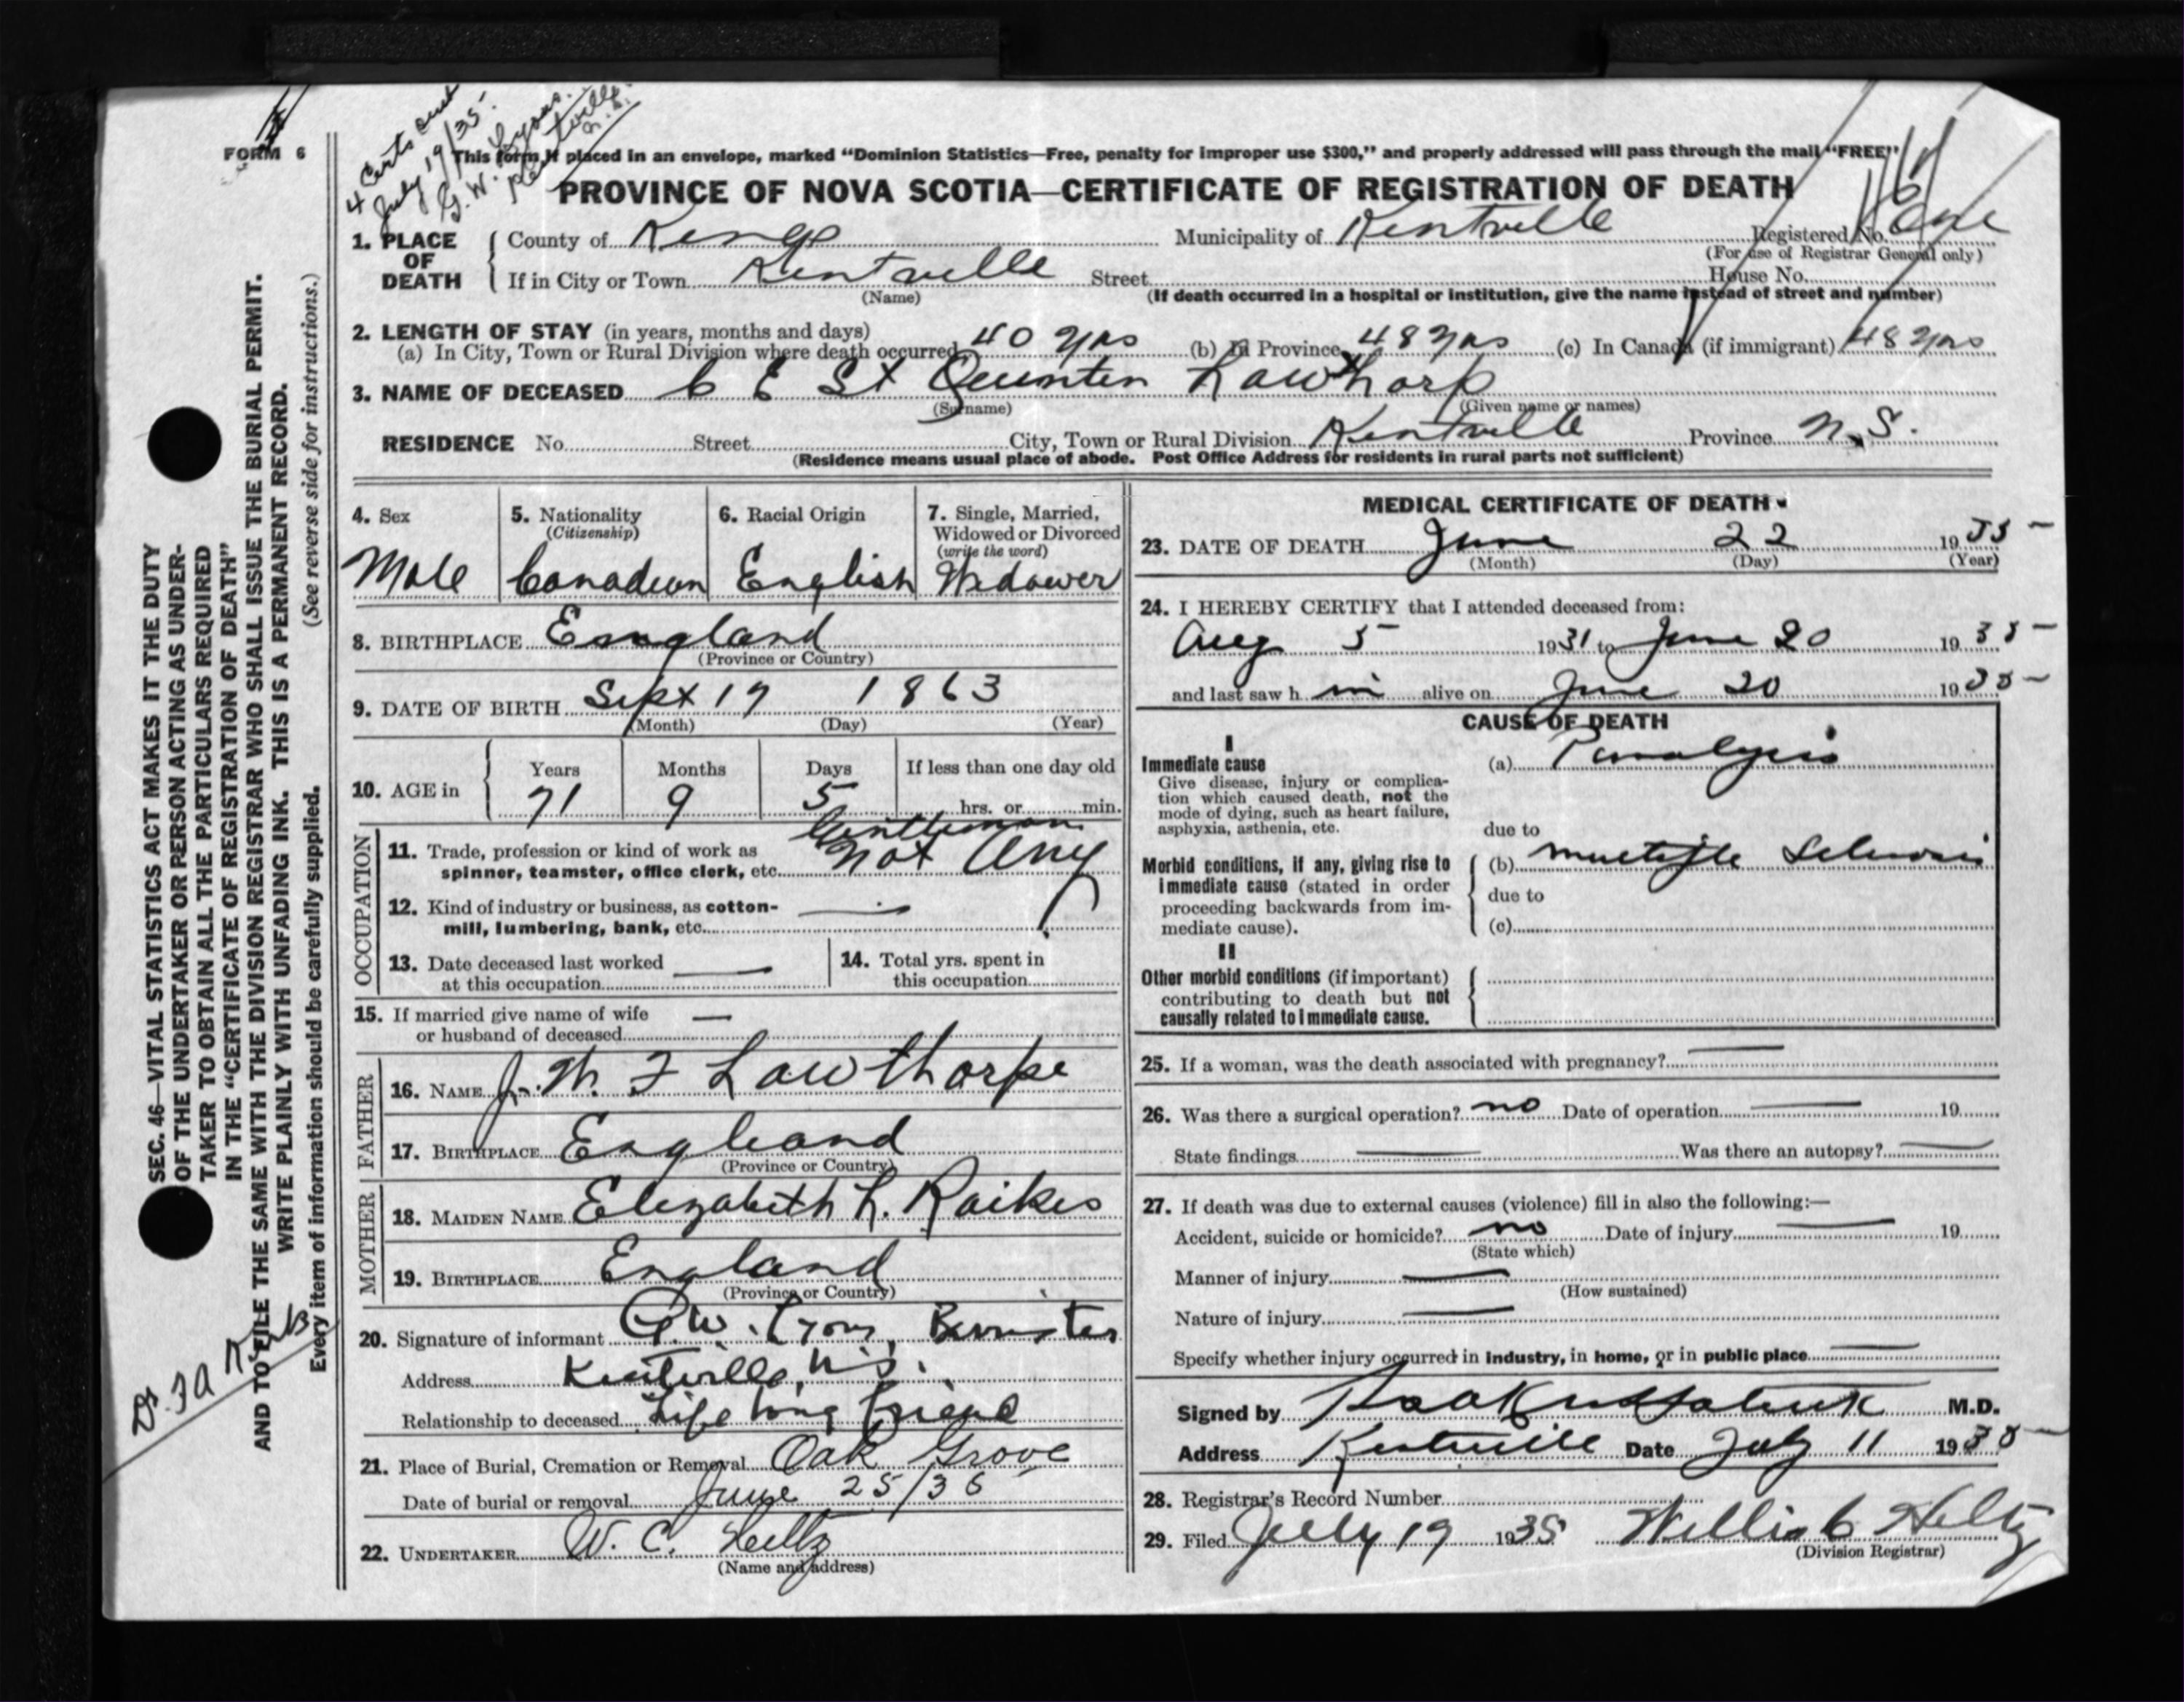 FORM 6
4 Certs sent
July 19/35-
G. W. Lyons.
Kentville.
N.S.
This form if placed in an envelope, marked "Dominion Statistics—Free, penalty for improper use $300," and properly addressed will pass through the mail "FREE"
PROVINCE OF NOVA SCOTIA—CERTIFICATE OF REGISTRATION OF DEATH
1. PLACE OF DEATH County of Kings Municipality of Kentville Registered No.
(For use of Registrar General only)
If in City or Town Kentville Street House No.
(Name) (If death occurred in a hospital or institution, give the name instead of street and number)
2. LENGTH OF STAY (in years, months and days)
(a) In City, Town or Rural Division where death occurred 40 yrs (b) In Province 48 yrs (c) In Canada (if immigrant) 48 yrs
3. NAME OF DECEASED C E St Quinten Lawthorp
(Surname) (Given name or names)
RESIDENCE No. Street City, Town or Rural Division Kentville Province N.S.
(Residence means usual place of abode. Post Office Address for residents in rural parts not sufficient)
4. Sex
Male
5. Nationality
(Citizenship)
Canadian
6. Racial Origin
English
7. Single, Married,
Widowed or Divorced
(write the word)
Widower
8. BIRTHPLACE England
(Province or Country)
9. DATE OF BIRTH Sept 17 1863
(Month) (Day) (Year)
10. AGE in Years Months Days If less than one day old
71 9 5 hrs. or min.
OCCUPATION
Gentleman
11. Trade, profession or kind of work as
spinner, teamster, office clerk, etc. Not Any
12. Kind of industry or business, as cotton-
mill, lumbering, bank, etc.
13. Date deceased last worked
at this occupation
14. Total yrs. spent in
this occupation
15. If married give name of wife
or husband of deceased
FATHER
16. NAME J. W. F Lawthorpe
17. BIRTHPLACE England
(Province or Country)
MOTHER
18. MAIDEN NAME Elizabeth L. Raikes
19. BIRTHPLACE England
(Province or Country)
20. Signature of informant G.W. Lyons, Barrister
Address Kentville, N.S.
Relationship to deceased Life long friend
21. Place of Burial, Cremation or Removal Oak Grove
Date of burial or removal June 25/35
22. UNDERTAKER W. C. Heltz
(Name and address)
MEDICAL CERTIFICATE OF DEATH
23. DATE OF DEATH June 22 1935
(Month) (Day) (Year)
24. I HEREBY CERTIFY that I attended deceased from:
Aug 5 1931 to June 20 1935
and last saw h im alive on June 20 1935
CAUSE OF DEATH
I
Immediate cause (a) Paralysis
Give disease, injury or complica-
tion which caused death, not the
mode of dying, such as heart failure,
asphyxia, asthenia, etc.
due to
Morbid conditions, if any, giving rise to (b) multiple Sclerosis
immediate cause (stated in order
proceeding backwards from im-
mediate cause).
due to
(c)
II
Other morbid conditions (if important)
contributing to death but not
causally related to immediate cause.
25. If a woman, was the death associated with pregnancy?
26. Was there a surgical operation? no Date of operation 19
State findings Was there an autopsy?
27. If death was due to external causes (violence) fill in also the following:—
Accident, suicide or homicide? no Date of injury 19
(State which)
Manner of injury
(How sustained)
Nature of injury
Specify whether injury occurred in industry, in home, or in public place
Signed by M.D.
Address Kentville Date July 11 1935
28. Registrar's Record Number
29. Filed July 19 1935 Willis C Heltz
(Division Registrar)
SEC. 46—VITAL STATISTICS ACT MAKES IT THE DUTY
OF THE UNDERTAKER OR PERSON ACTING AS UNDER-
TAKER TO OBTAIN ALL THE PARTICULARS REQUIRED
IN THE "CERTIFICATE OF REGISTRATION OF DEATH"
AND TO FILE THE SAME WITH THE DIVISION REGISTRAR WHO SHALL ISSUE THE BURIAL PERMIT.
WRITE PLAINLY WITH UNFADING INK. THIS IS A PERMANENT RECORD.
Every item of information should be carefully supplied. (See reverse side for instructions.)